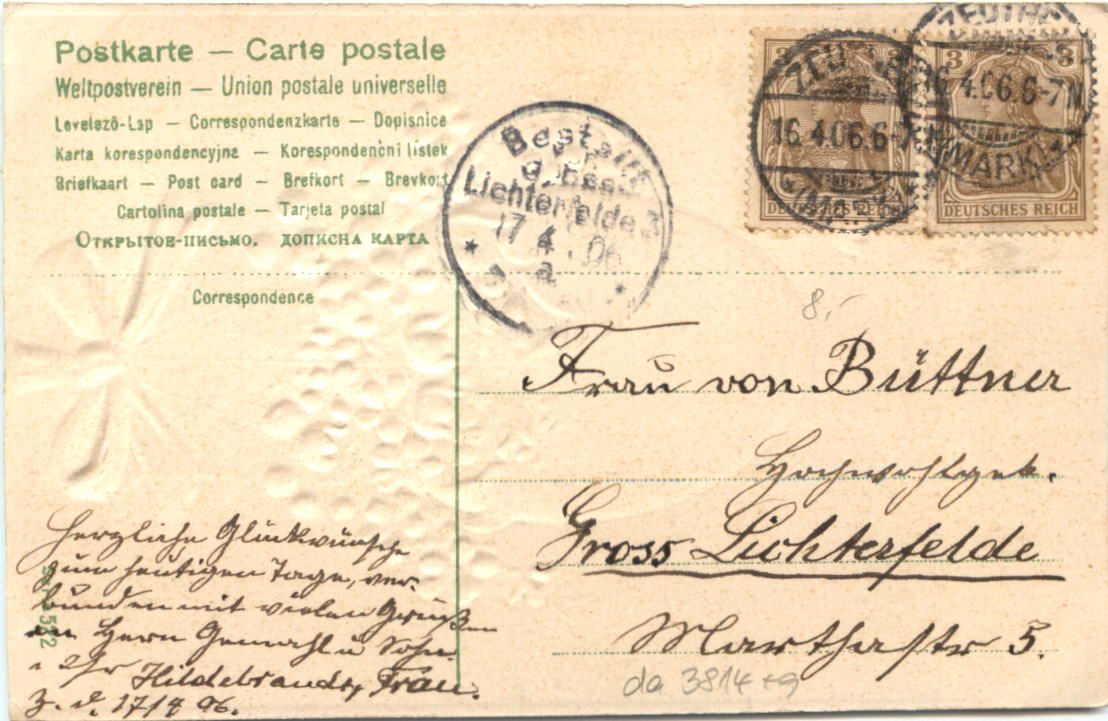 Postkarte — Carte postale
Weltpostverein — Union postale universelle
Levelezö-Lap — Correspondenzkarte — Dopisnice
Karta korespondencyjna — Korespondenčni listek
Briefkaart — Post card — Brefkort — Brevkort
Cartolina postale — Tarjeta postal
Открытое-письмо. дописна карта
Correspondence
Bestellt
Gr.
Lichterfelde 3
17 4. 06
a
3 3
ZEU
16.4.06.6-7N
(MARK)
DEUTSCHES REICH
ZEUTHEN
16.4.06.6-7N
(MARK)
DEUTSCHES REICH
8,-
Frau von Büttner
Hochwohlgeb.
Gross Lichterfelde
Marthastr 5.
Herzliche Glückwünsche
zum heutigen Tage, ver-
bunden mit vielen Grüßen
an Herrn Gemahl u Sohn.
Ihr Hildebrandt, Frau.
Z. d. 17/4 06.
3572
da 3814 +9